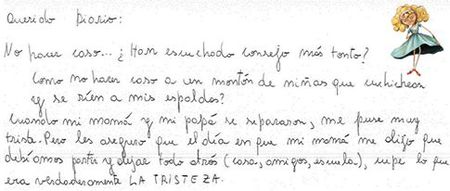 Querido Diario:
No hacer caso... ¿Han escuchado consejo más tonto?
Como no hacer caso a un montón de niñas que cuchichean
y se ríen a mis espaldas?
Cuando mi mamá y mi papá se separaron, me puse muy
triste. Pero les aseguro que el día en que mi mamá me dijo que
debíamos partir y dejar todo atrás (casa, amigos, escuela), supe lo que
era verdaderamente LA TRISTEZA.